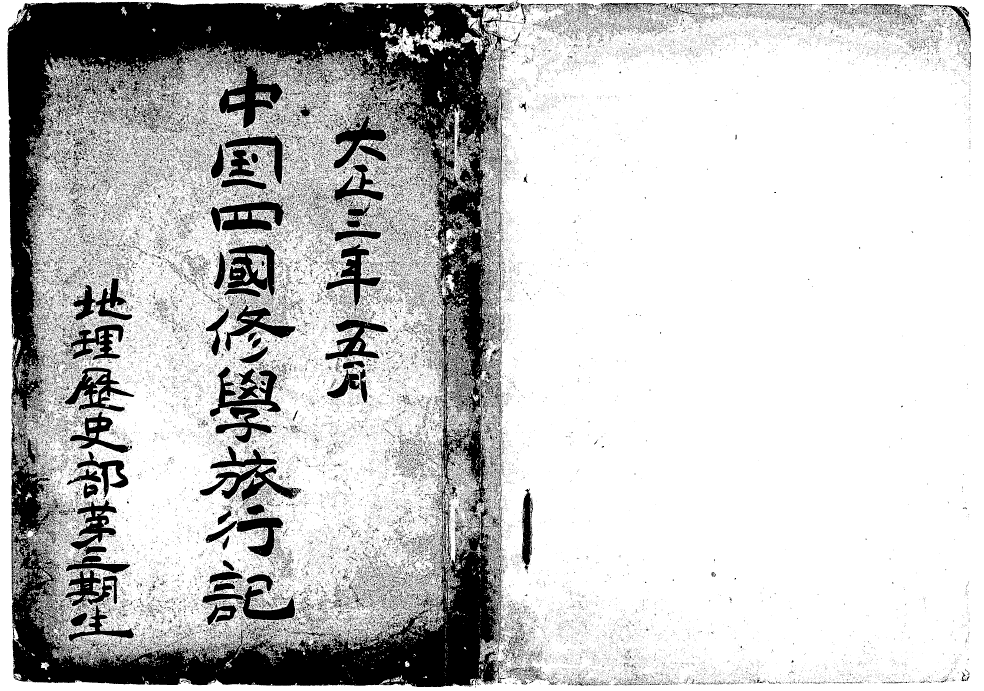 大正三年五月
中国四國修學旅行記
地理歷史部第三期生